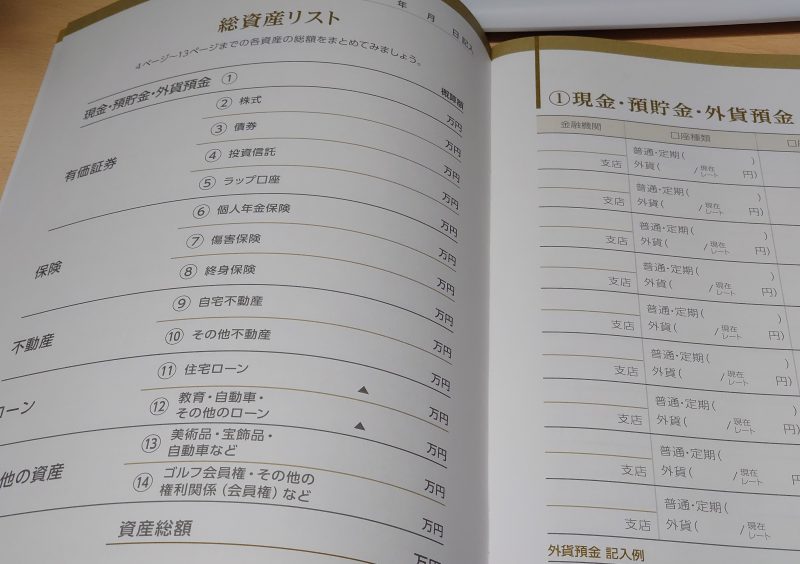 年 月 日 記入
総資産リスト
4ページ~13ページまでの各資産の総額をまとめてみましょう。
概算額
現金・預貯金・外貨預金 ① 万円
有価証券
② 株式 万円
③ 債券 万円
④ 投資信託 万円
⑤ ラップ口座 万円
保険
⑥ 個人年金保険 万円
⑦ 傷害保険 万円
⑧ 終身保険 万円
不動産
⑨ 自宅不動産 万円
⑩ その他不動産 万円
ローン
⑪ 住宅ローン ▲ 万円
⑫ 教育・自動車・
その他のローン ▲ 万円
他の資産
⑬ 美術品・宝飾品・
自動車など 万円
⑭ ゴルフ会員権・その他の
権利関係(会員権)など 万円
資産総額 万円
①現金・預貯金・外貨預金
金融機関 口座種類 口
普通・定期( )
支店 外貨( /現在レート 円)
普通・定期( )
支店 外貨( /現在レート 円)
普通・定期( )
支店 外貨( /現在レート 円)
普通・定期( )
支店 外貨( /現在レート 円)
普通・定期( )
支店 外貨( /現在レート 円)
普通・定期( )
支店 外貨( /現在レート 円)
普通・定期( )
支店 外貨( /現在レート 円)
普通・定期(
支店 外貨( /現在レート 円
普通・定期(
支店 外貨( /現在レート
外貨預金 記入例